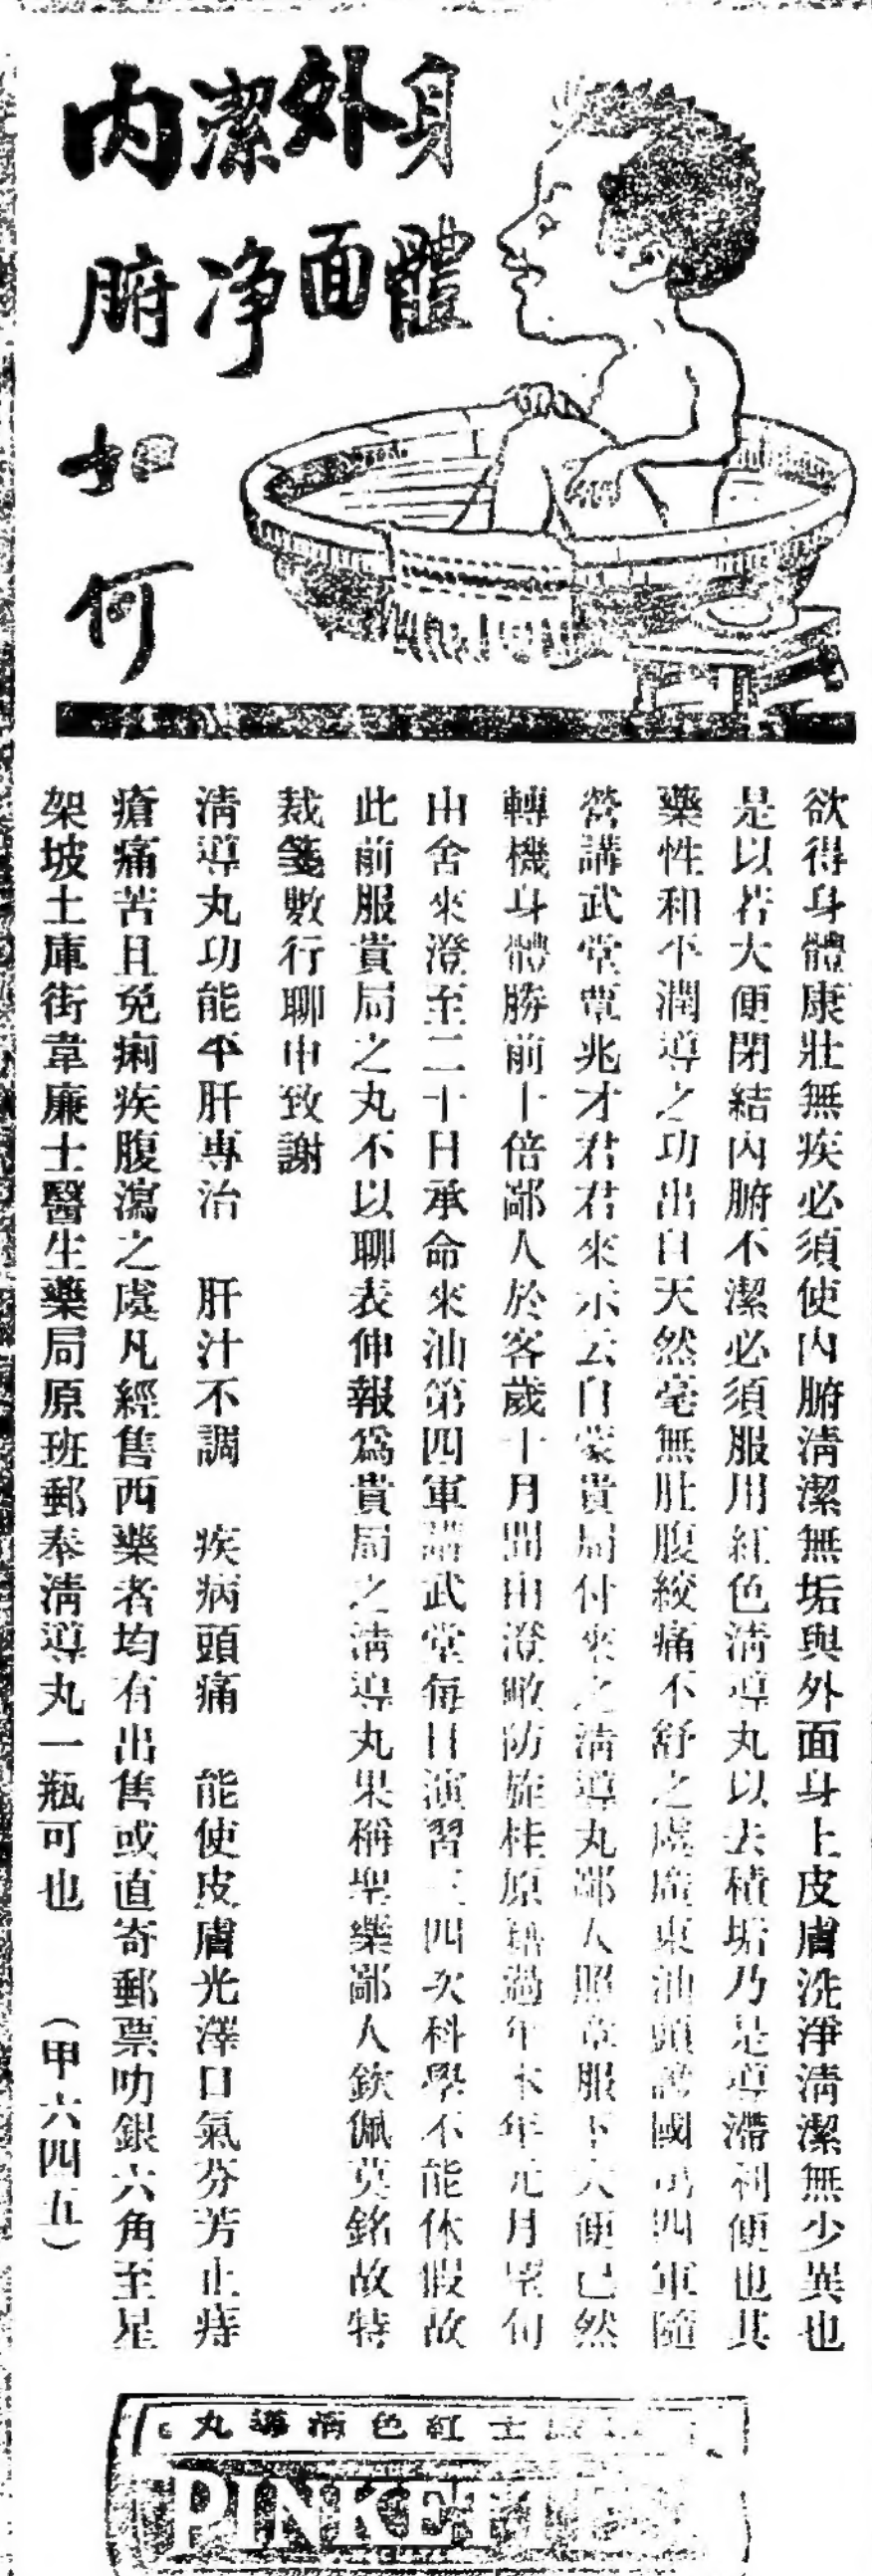 身體
外面
潔净
内腑如何
欲得身體康壯無疾必須使內腑清潔無垢與外面身上皮膚洗淨清潔無少異也
是以若大便閉結內腑不潔必須服用紅色清導丸以去積垢乃是導滯利便也其
藥性和平潤導之功出自天然毫無肚腹絞痛不舒之處廣東汕頭國四軍隨
營講武堂覃兆才君君來示云自蒙貴局付來之清導丸鄙人照章服下大便已然
轉機身體勝前十倍鄙人於客歲十月間由澄防旋桂原籍過年本年元月旬
由舍來澄至二十日承命來汕第四軍講武堂每日演習三四次科學不能休假故
此前服貴局之丸不以聊表伸報爲貴局之清導丸果稱聖藥鄙人欽佩莫銘故特
裁箋數行聊申致謝
清導丸功能平肝專治 肝汁不調 疾病頭痛 能使皮膚光澤口氣芬芳止痔
瘡痛苦且免痢疾腹瀉之虞凡經售西藥者均有出售或直寄郵票叻銀六角至星
架坡土庫街韋廉士醫生藥局原班郵奉清導丸一瓶可也 （甲六四五）
士紅色清導丸
PINKETTES